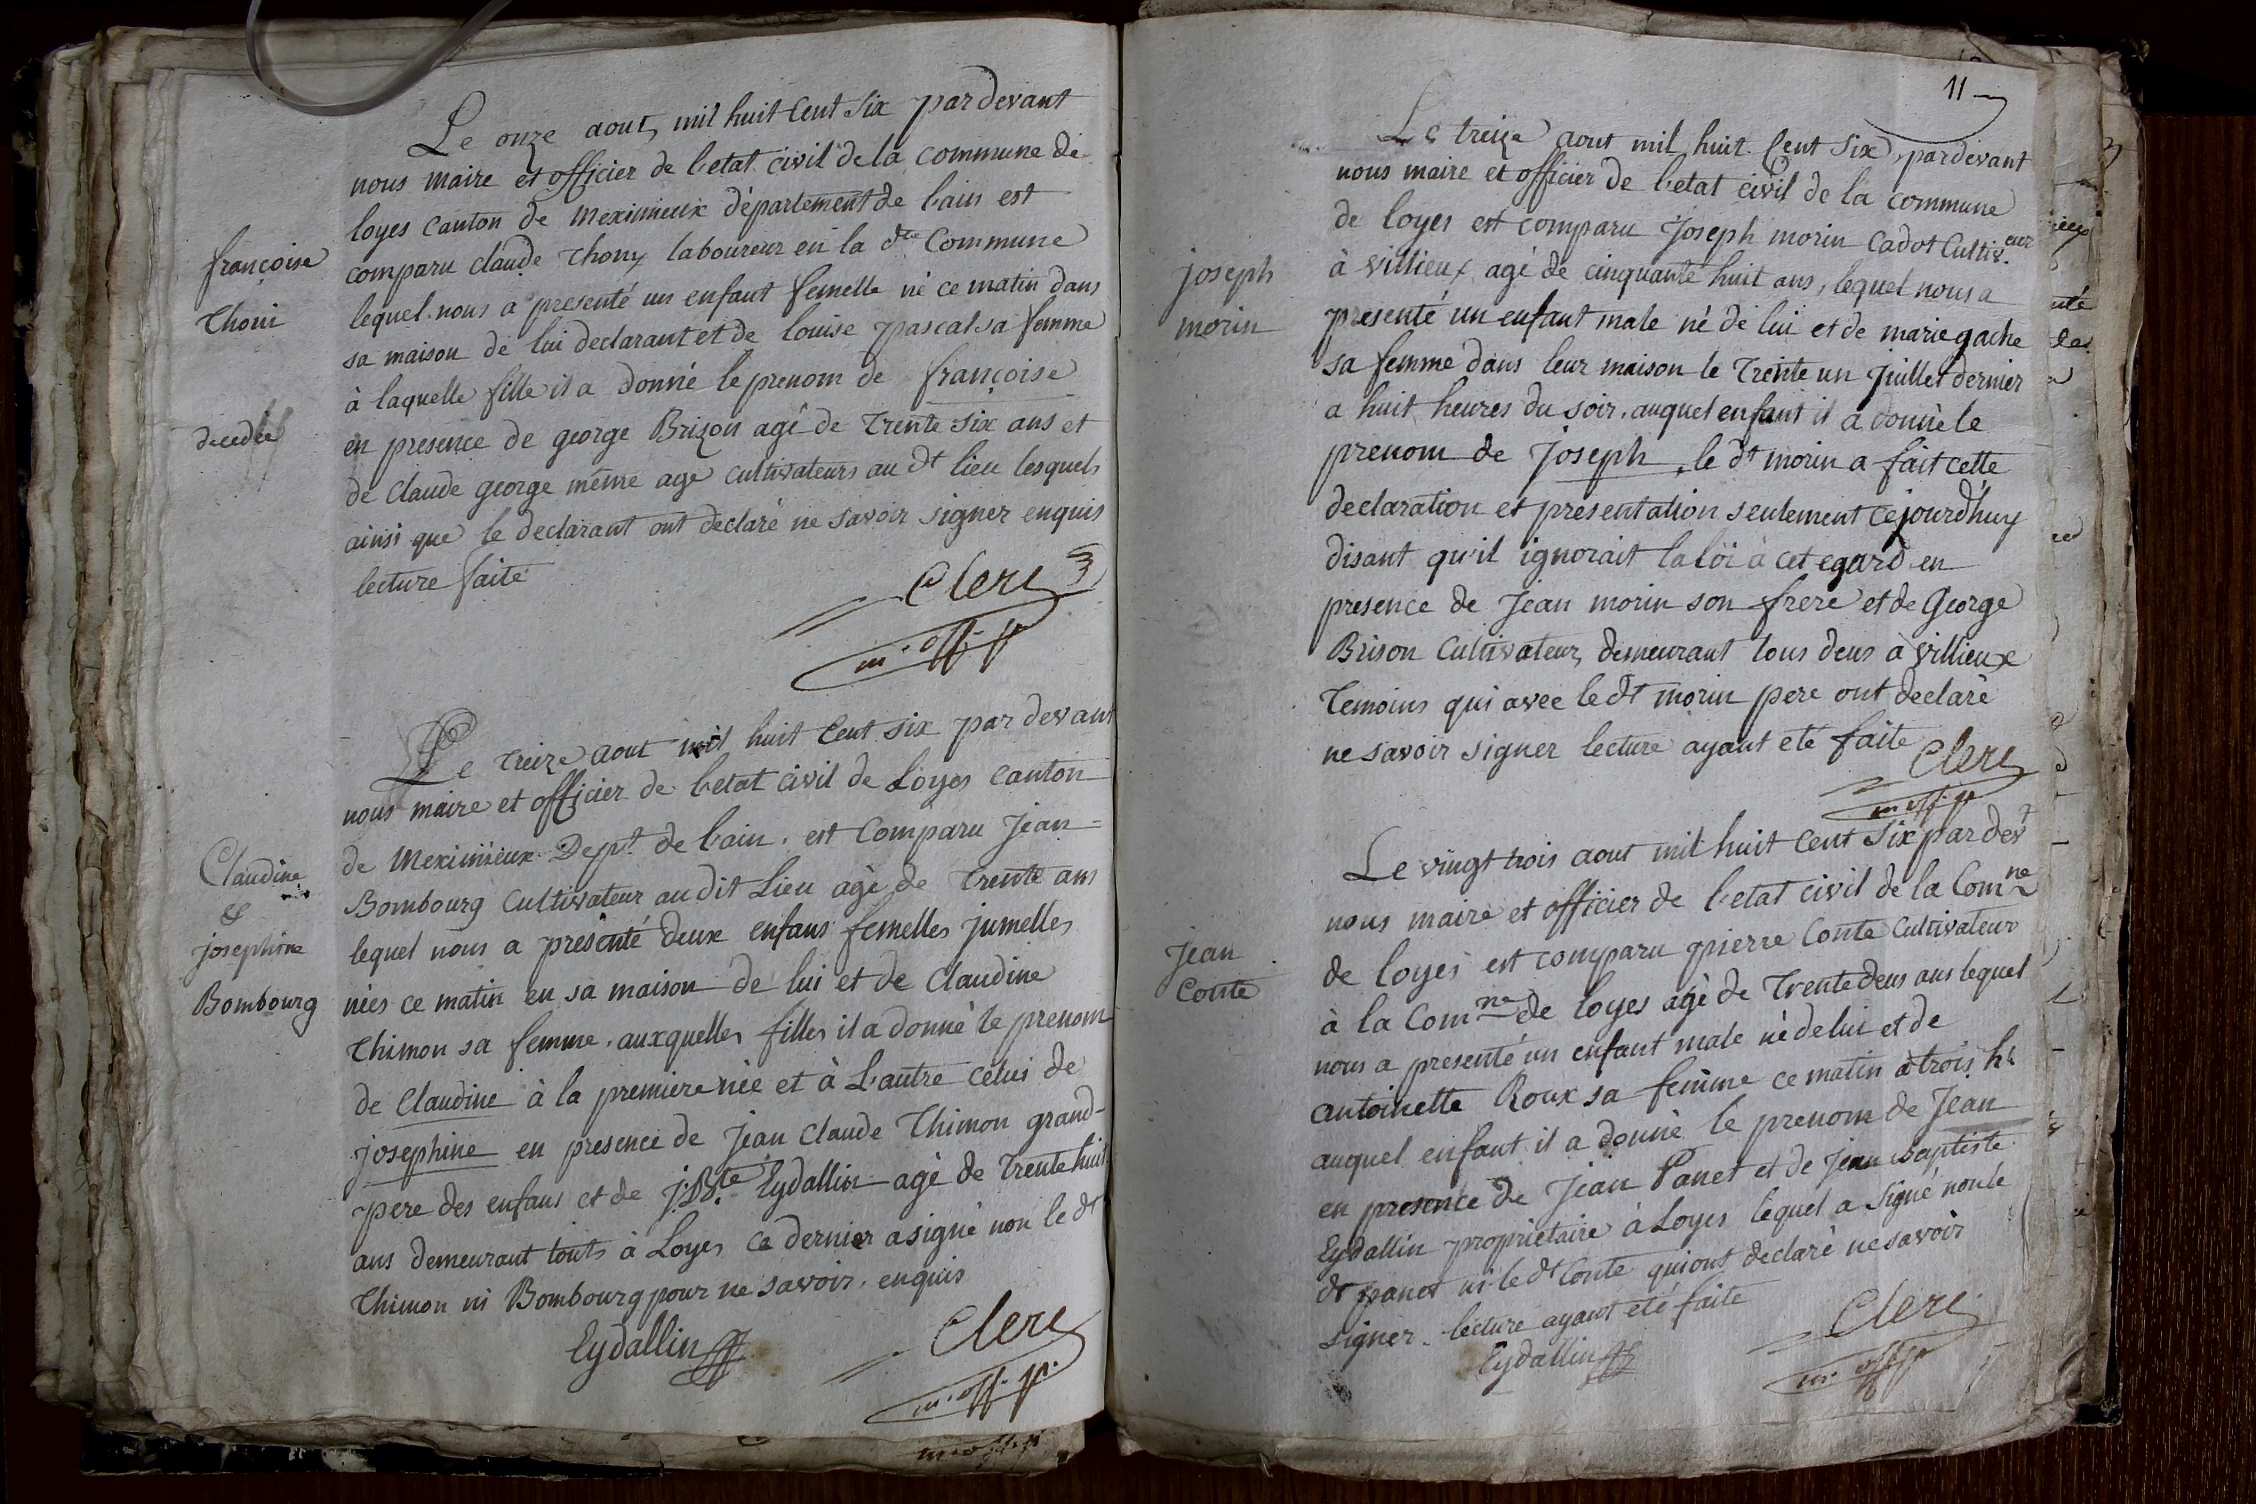 françoise
Thoni
decedée
Le onze aout, mil huit Cent Six par devant
nous maire et officier de l'etat civil de la commune de
loyes canton de meximieux département de l'ain est
comparu claude Thony laboureur en la dte Commune
lequel nous a presenté un enfant femelle né ce matin dans
sa maison de lui declarant et de louise pascal sa femme
à laquelle fille il a donné le prenom de françoise
en presence de george Brison agé de Trente six ans et
de Claude george même age cultivateurs au dt lieu lesquels
ainsi que le declarant ont declaré ne savoir signer enquis
lecture faite
Clerc
m. off. p
Claudine
&
josephine
Bombourg
Le treize aout mil huit Cent six par devant
nous maire et officier de l'etat civil de Loyes canton
de meximieux Dept de l'ain. est Comparu Jean=
Bombourg Cultivateur au dit Lieu agé de trente ans
lequel nous a presenté deux enfans femelles jumelles
nées ce matin en sa maison de lui et de Claudine
Thimon sa femme. auxquelles filles il a donné le prenom
de Claudine à la premiere née et à L'autre celui de
josephine en presence de Jean Claude Thimon grand-
pere des enfans et de j. Bte Eydallin agé de Trente huit
ans demeurant touts à Loyes ce dernier a signé non le dt
Thimon ni Bombourg pour ne savoir. enquis
Eydallin
Clerc
m. off. p.
m. off. p
11
joseph
morin
Le treize aout mil huit Cent Six, pardevant
nous maire et officier de l'etat civil de la commune
de loyes est comparu Joseph morin Cadot Cultiv.eur
à villieux agé de cinquante huit ans, lequel nous a
presenté un enfant male né de lui et de marie gache
sa femme dans leur maison le Trente un Juillet dernier
a huit heures du soir. auquel enfant il a donné le
prenom de Joseph, le dt morin a fait cette
declaration et presentation seulement cejourd'huy
disant qu'il ignorait la loi à cet egard en
presence de Jean morin son frere et de George
Brison Cultivateur, demeurant tous deus à villieux
Temoins qui avec le dt morin pere ont declaré
ne savoir signer lecture ayant eté faite
Clerc
m. off. p
Jean
Conte
Le vingt trois aout mil huit cent Six par devt
nous maire et officier de l'etat civil de la Comne
de loyes est comparu pierre Conte Cultivateur
à la Comne de loyes agé de Trente deus ans lequel
nous a presenté un enfant male né de lui et de
antoinette Roux sa femme ce matin à trois hs
auquel enfant il a donné le prenom de Jean
en presence de Jean Panet et de Jean Baptiste
Eydallin proprietaire à Loyes lequel a signé non le
dt panet ni le dt Conte qui ont declaré ne savoir
signer. lecture ayant eté faite
Eydallin
Clerc
m. off. p